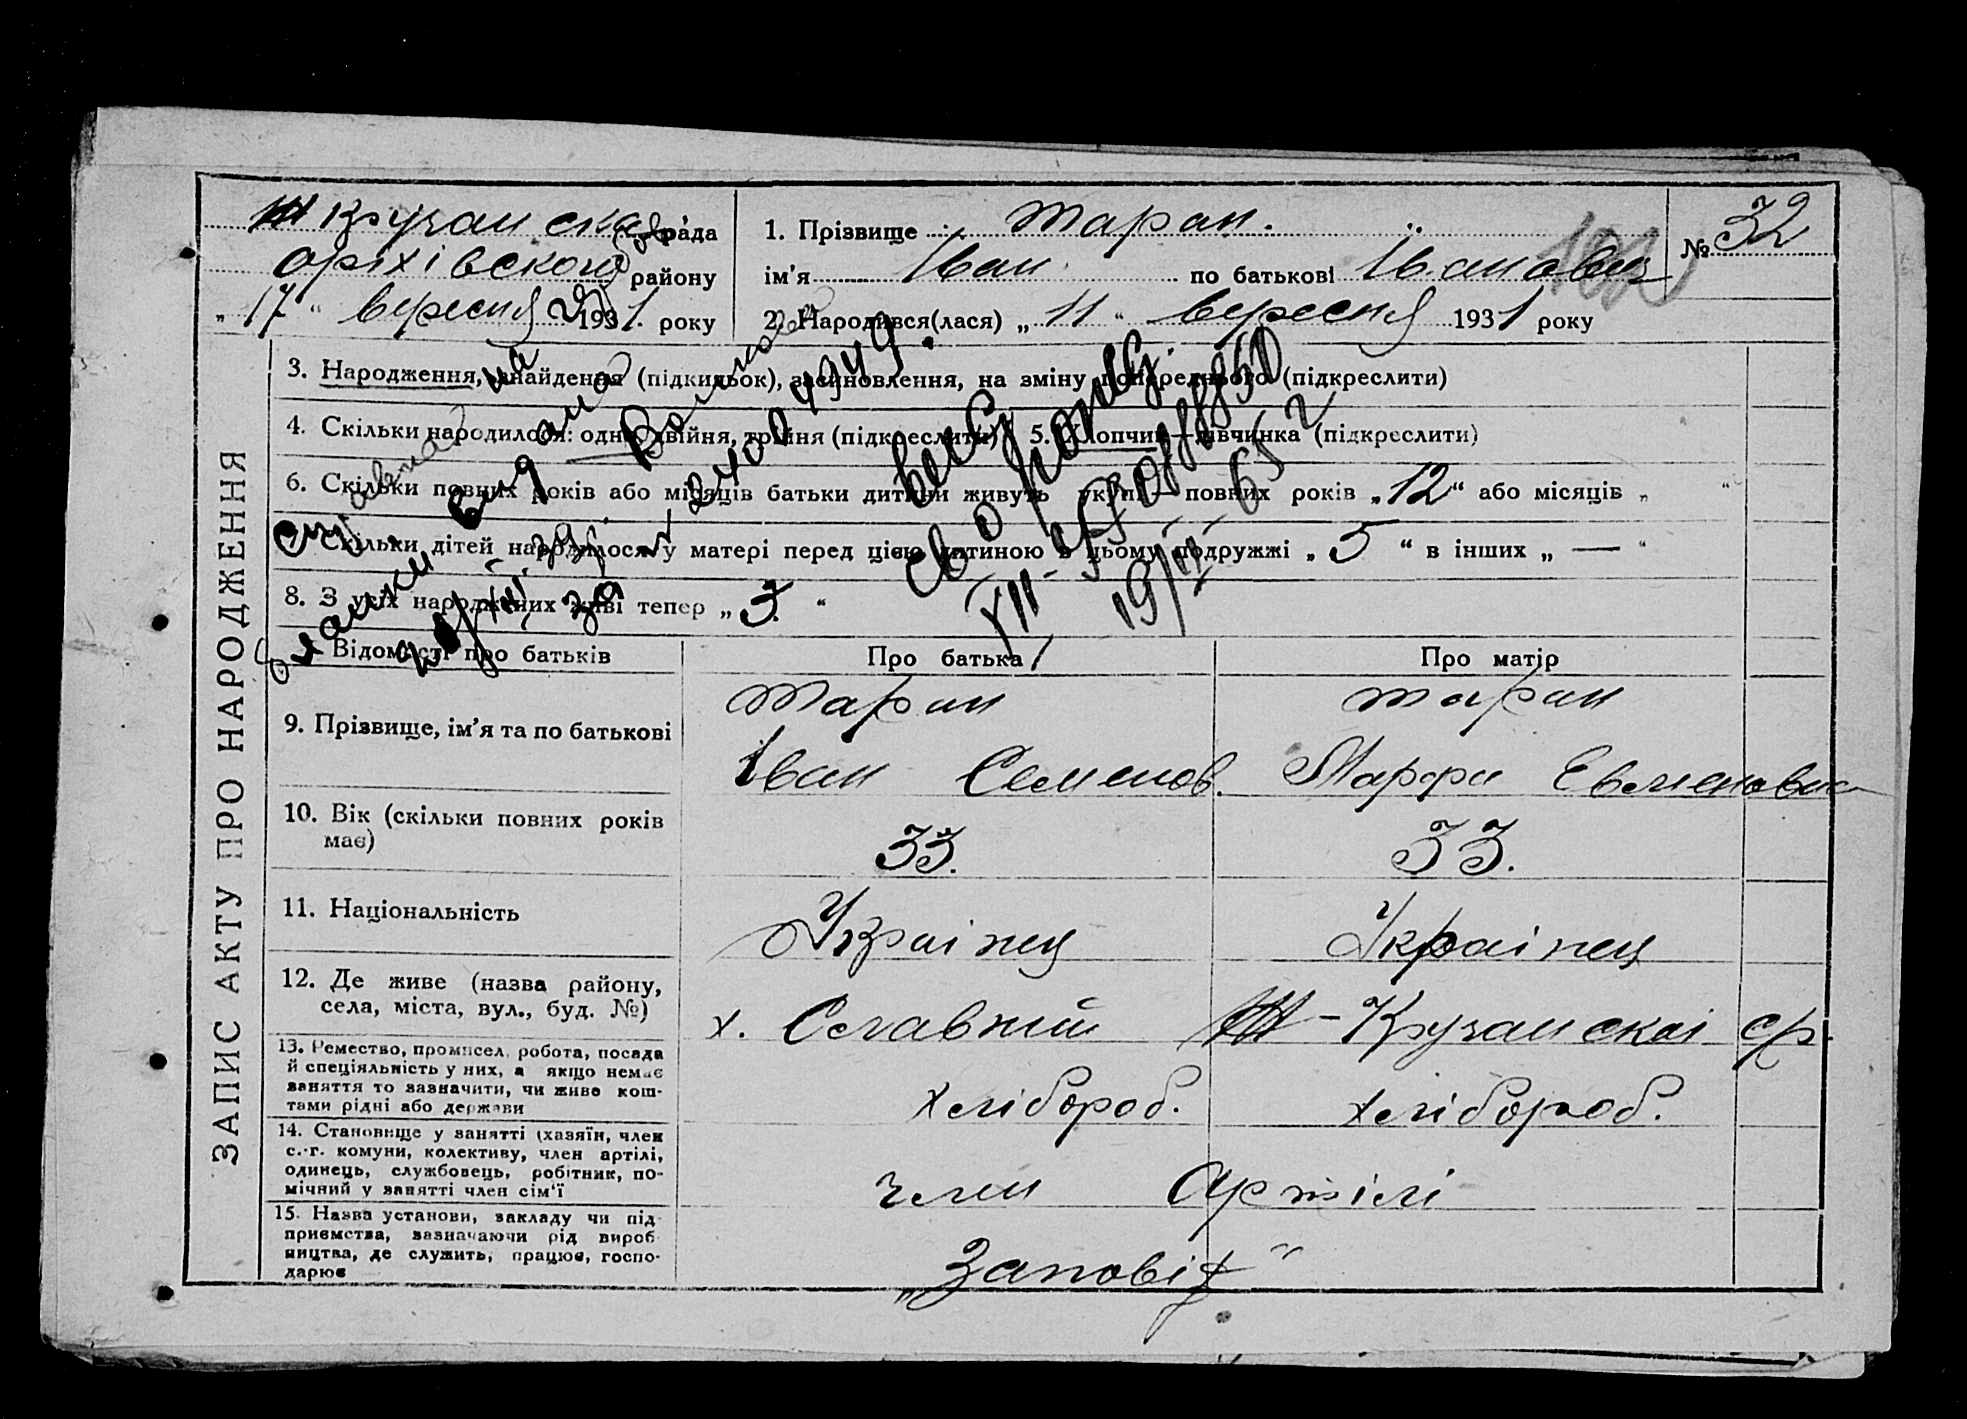 Кружанська рада
Оріхівского району
„17“ вересня 1931 року
1. Прізвище Таран.
ім'я Іван по батькові Іванович
№ 32
2. Народився(лася) „11“ вересня 1931 року
ЗАПИС АКТУ ПРО НАРОДЖЕННЯ
3. Народження, знайдення (підкидьок), засиновлення, на зміну попереднього (підкреслити)
4. Скільки народилося: одно, двійня, трійня (підкреслити) 5. Хлопчик—дівчинка (підкреслити)
6. Скільки повних років або місяців батьки дитини живуть укупі— повних років „12“ або місяців „ “
Скільки дітей народилося у матері перед цією дитиною в цьому подружжі „5“ в інших „—“
8. З усіх народжених живі тепер „3.“
Відомості про батьків Про батька Про матір
9. Прізвище, ім'я та по батькові Таран Таран
Іван Семенов. Марфа Евменовна
10. Вік (скільки повних років має) 33. 33.
11. Національність Украінец Украінец
12. Де живе (назва району, села, міста, вул., буд. №) х. Славний
13. Ремество, промисел, робота, посада й спеціяльність у них, а якщо немає заняття то зазначити, чи живе коштами рідні або держави хлібороб. хлібороб.
14. Становище у занятті (хазяїн, член с.-г. комуни, колективу, член артілі, одинець, службовець, робітник, помічний у занятті член сім'ї член Артілі
15. Назва установи, закладу чи підприємства, зазначаючи рід виробництва, де служить, працює, господарює „Заповіт“